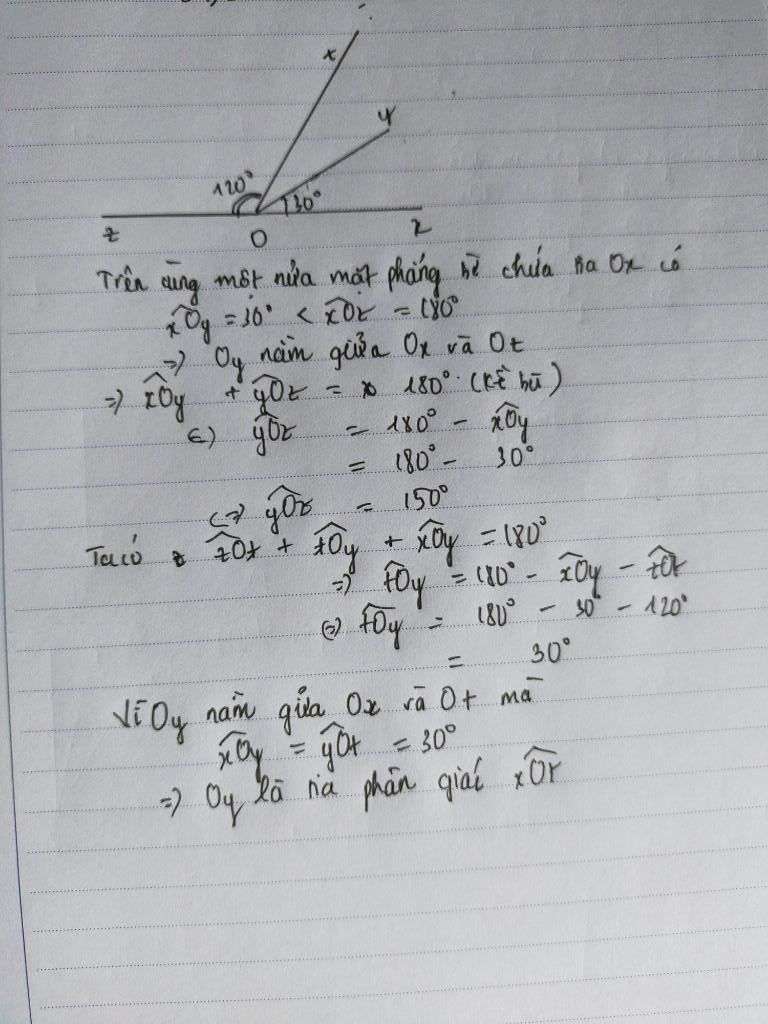 x
y
120°
30°
z
O
x
Trên cùng một nửa mặt phẳng bờ chứa tia Ox có
xOy = 30° < xOz = 180°
=> Oy nằm giữa Ox và Oz
=> xOy + yOz = 180° (kề bù)
<=> yOz = 180° - xOy
= 180° - 30°
<=> yOz = 150°
Ta có zOt + tOy + xOy = 180°
=> tOy = 180° - xOy - zOt
<=> tOy = 180° - 30° - 120°
= 30°
Vì Oy nằm giữa Ox và Ot mà
xOy = yOt = 30°
=> Oy là tia phân giác xOt